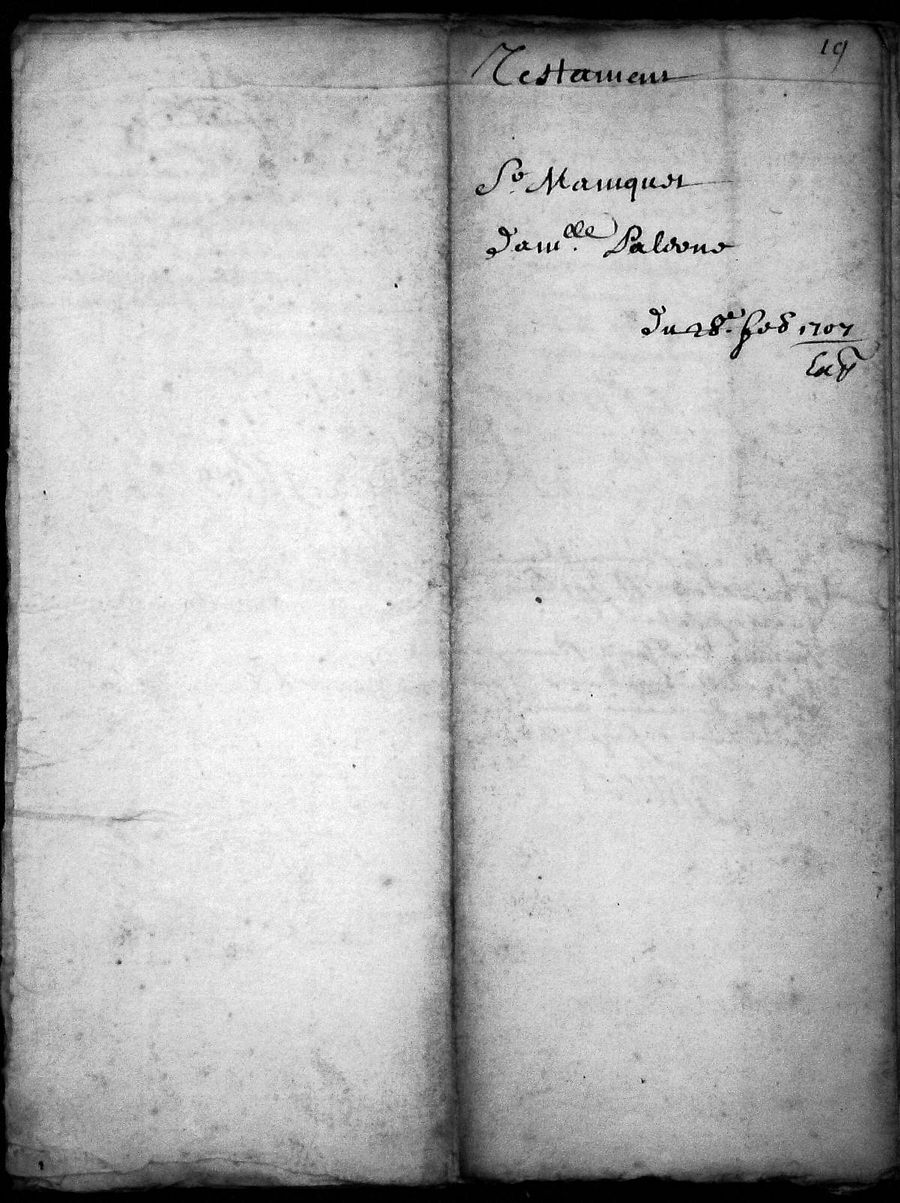 19
Testament
Sr. Mamquet
Damlle. Paleone
Du 28e. feb 1707